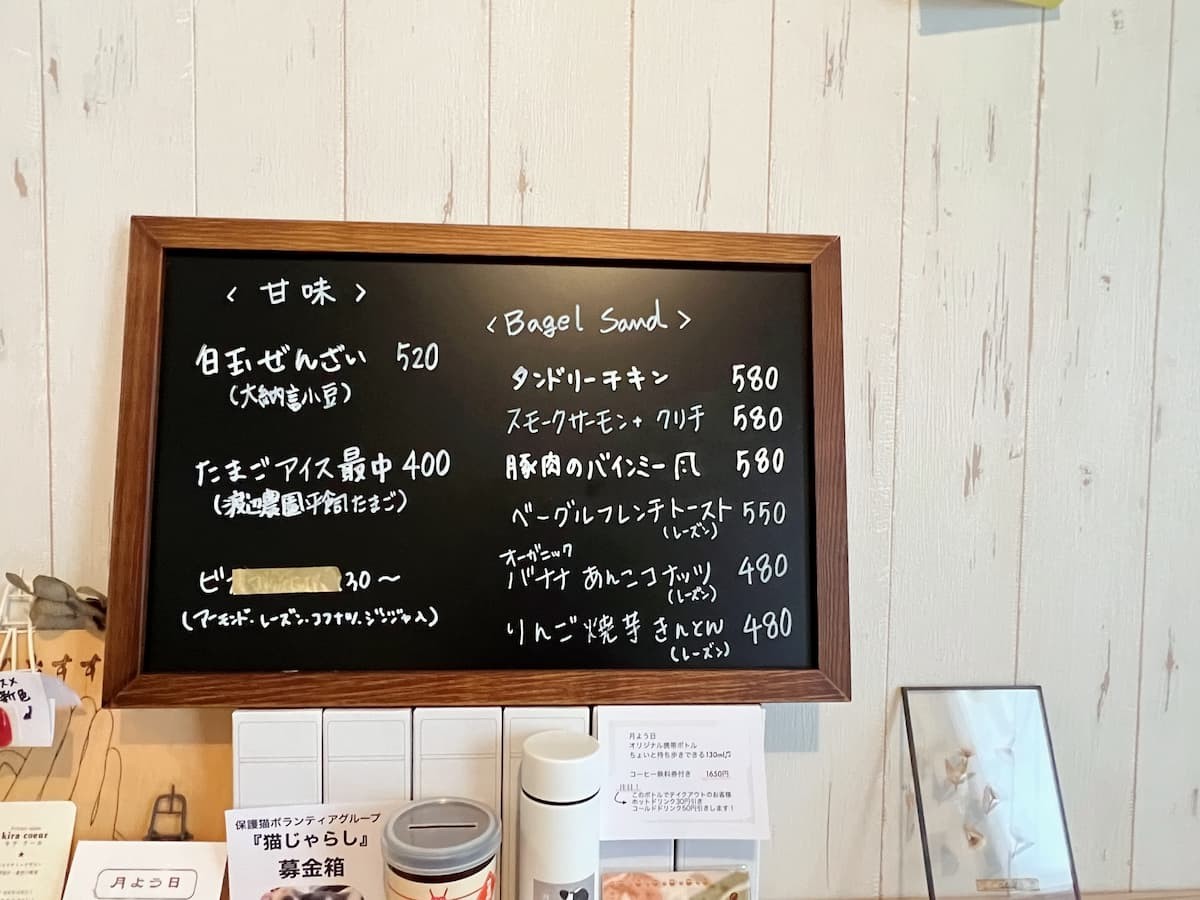 < 甘味 >
白玉ぜんざい 520
(大納言小豆)
たまごアイス最中 400
(渡辺農園平飼たまご)
30〜
(アーモンド・レーズン・ココナツ・ジンジャ入)
< Bagel Sand >
タンドリーチキン 580
スモークサーモン+クリチ 580
豚肉のバインミー風 580
ベーグルフレンチトースト 550
(レーズン)
オーガニック
バナナ あんこコナッツ 480
(レーズン)
りんご焼芋きんとん 480
(レーズン)
新色
kira coeur
キラ クール
月よう日
保護猫ボランティアグループ
『猫じゃらし』
募金箱
月よう日
オリジナル携帯ボトル
ちょいと持ち歩きできる130ml♫
コーヒー無料券付き 1650円
注目!
このボトルでテイクアウトのお客様
ホットドリンク30円引き
コールドドリンク50円引きします!